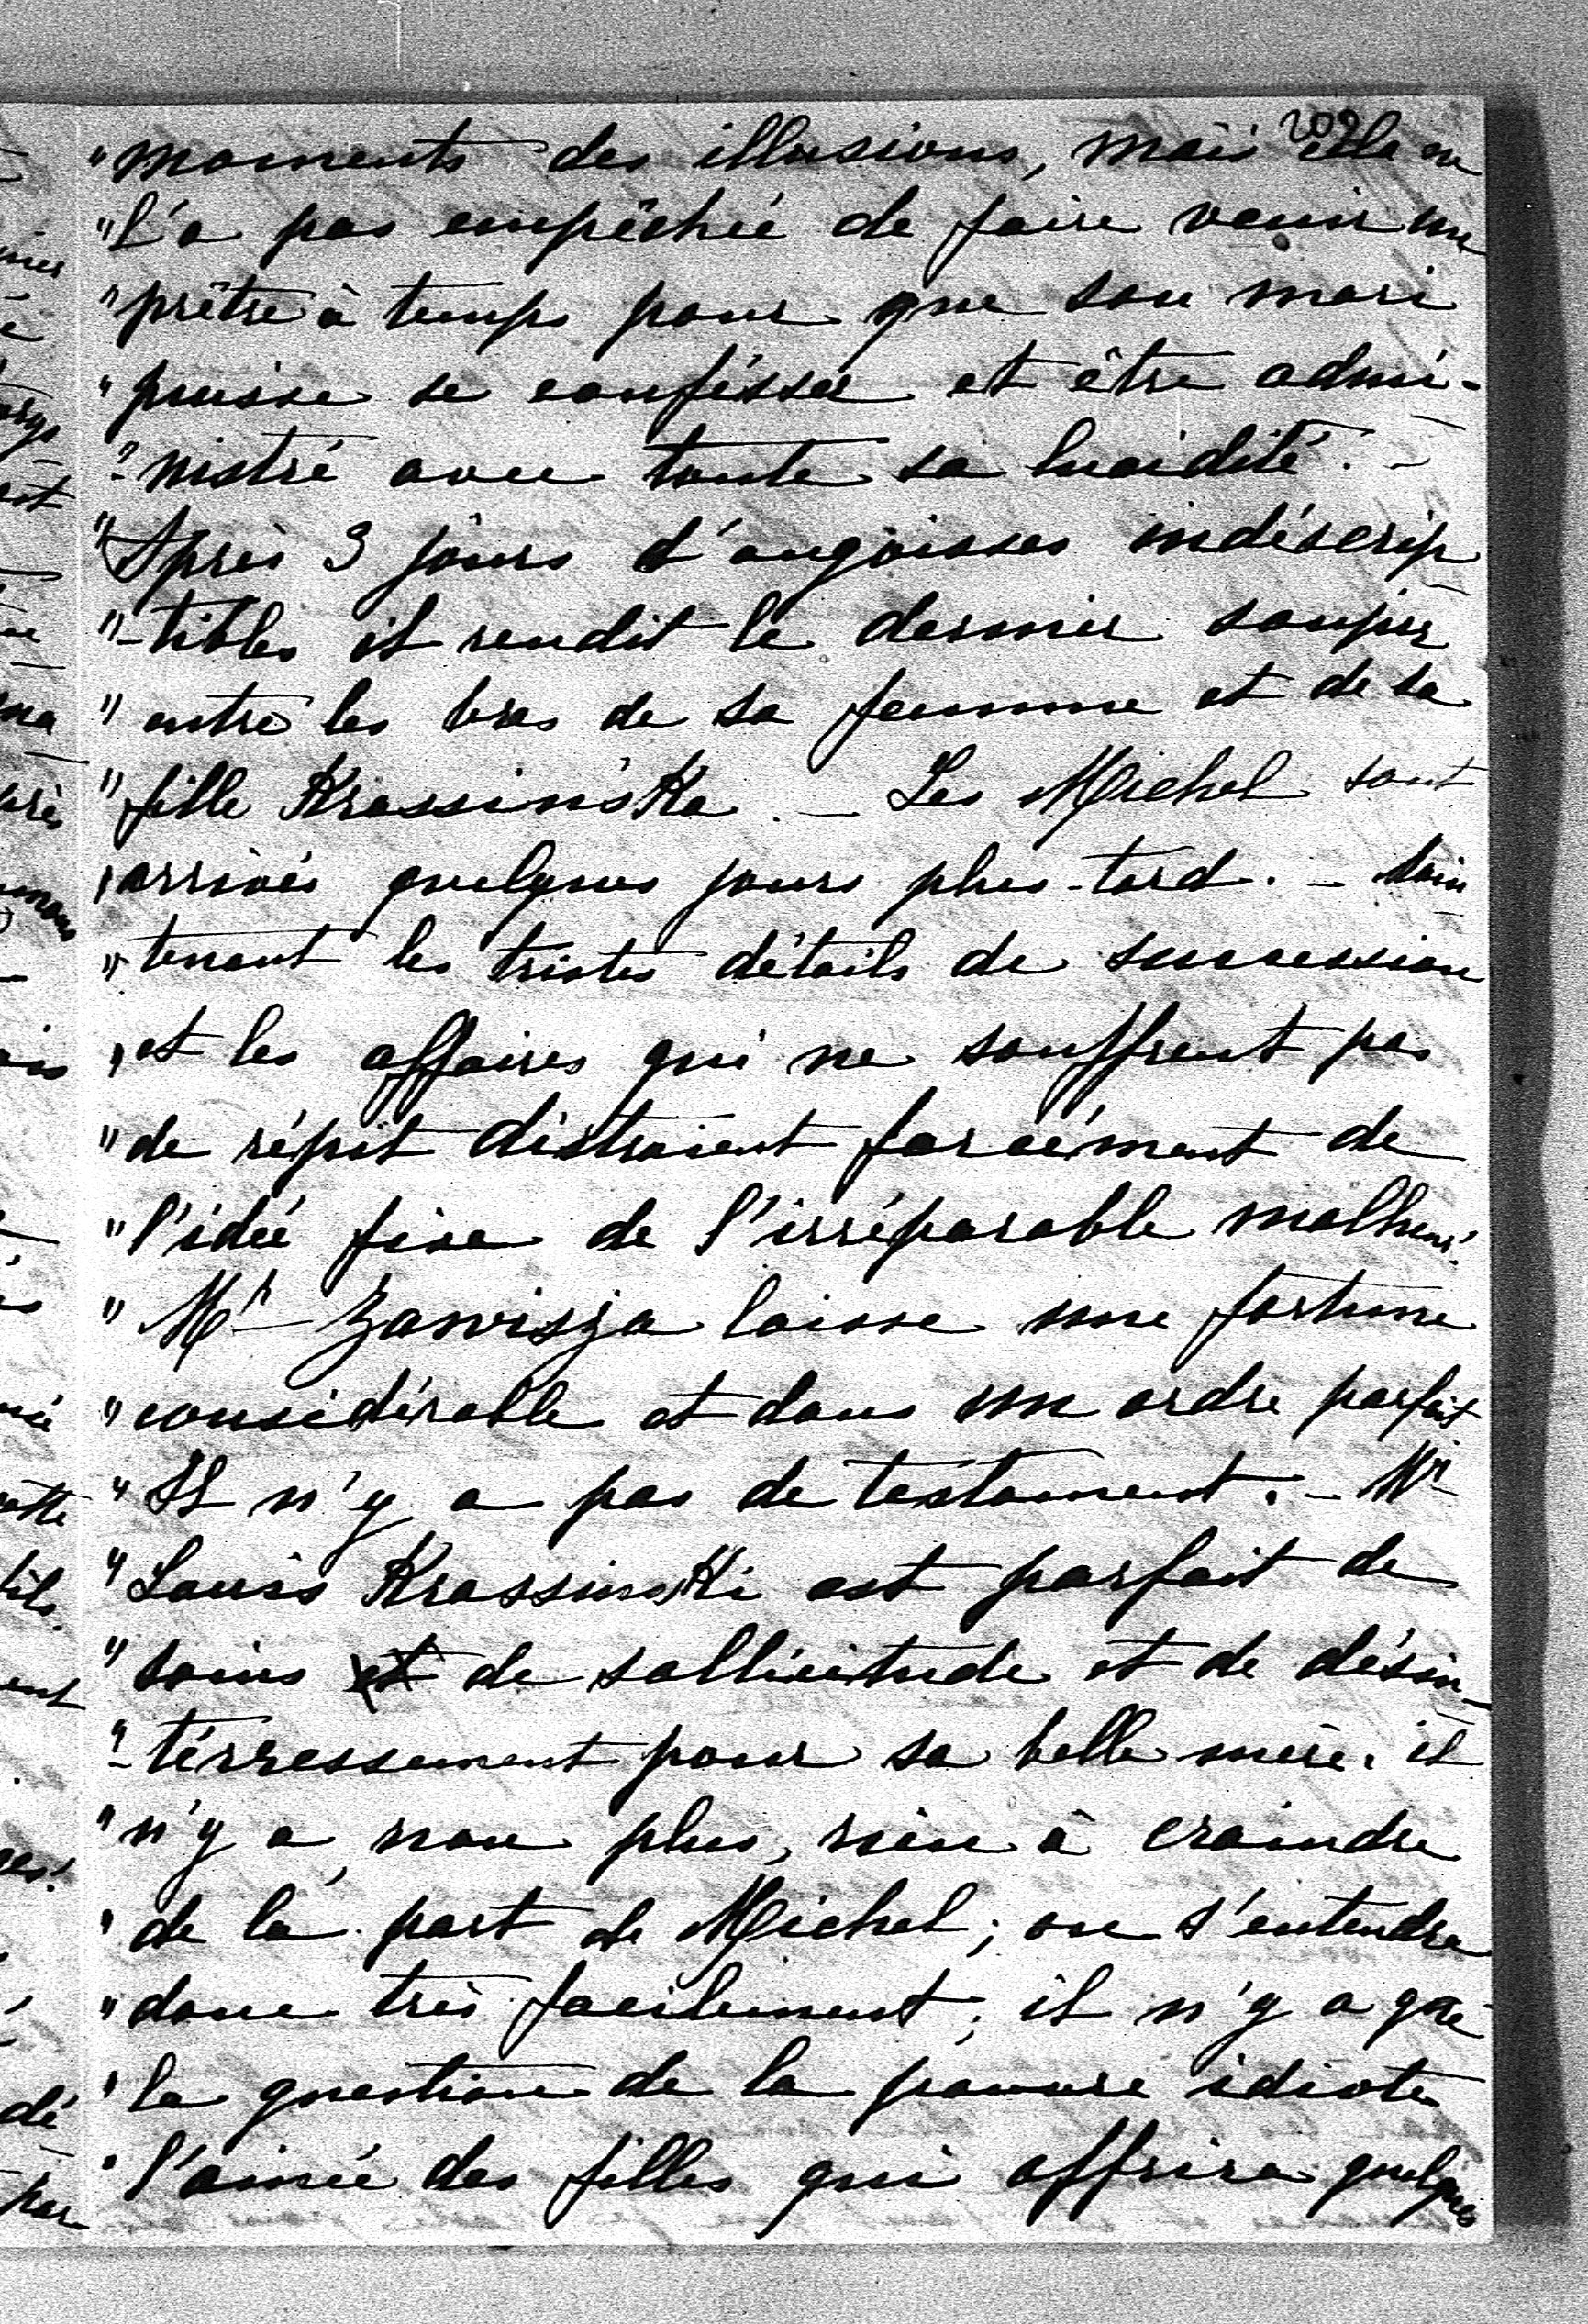 209
"moments des illusions, mais cela ne
"l'a pas empêchée de faire venir un
"prêtre à temps pour que son mari
"puisse se confésser et être admi-
"-nistré avec toute sa lucidité. -
"Après 3 jours d'angoisses indéscrip
"-tibles il rendit le dernier soupir
"entre les bras de sa femme et de sa
"fille Krassińska. - Les Michel sont
"arrivés quelques jours plus-tard. - Main
"-tenant les tristes détails de succession
"et les affaires qui ne souffrent pas
"de répit distraient forcément de
"l'idée fixe de l'irréparable malheur!
"Mr Zawisza laisse une fortune
"considérable et dans un ordre parfait
"Il n'y a pas de testament. - Mr
"Louis Krassinski est parfait de
"soins et de sollicitude et de désin-
"-térressement pour sa belle mère. il
"n'y a, non plus, rien à craindre
"de la part de Michel; on s'entendra
"donc très facilement; il n'y a que
"la question de la pauvre idiote
"l'ainée des filles qui offrira quelques